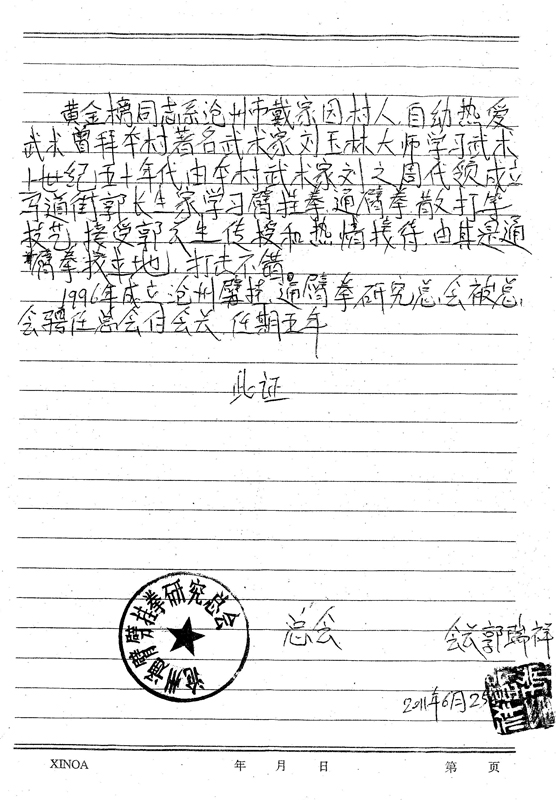 黄金榜同志系沧州市戴家园村人,自幼热爱
武术曾拜本村著名武术家刘玉林大师学习武术
廿世纪五十年代由本村武术家刘之周代领成立
车道街郭长生家学习劈挂拳,通臂拳散打等
技艺,接受郭长生传授和热情接待,由其是通
臂拳找立地,打法不错
1996年成立沧州劈挂,通臂拳研究总会被总
会聘任总会付会长 任期五年
此证
沧州通臂劈挂拳研究总会
总会 会长郭瑞祥
2011年6月25
XINOA 年 月 日 第 页